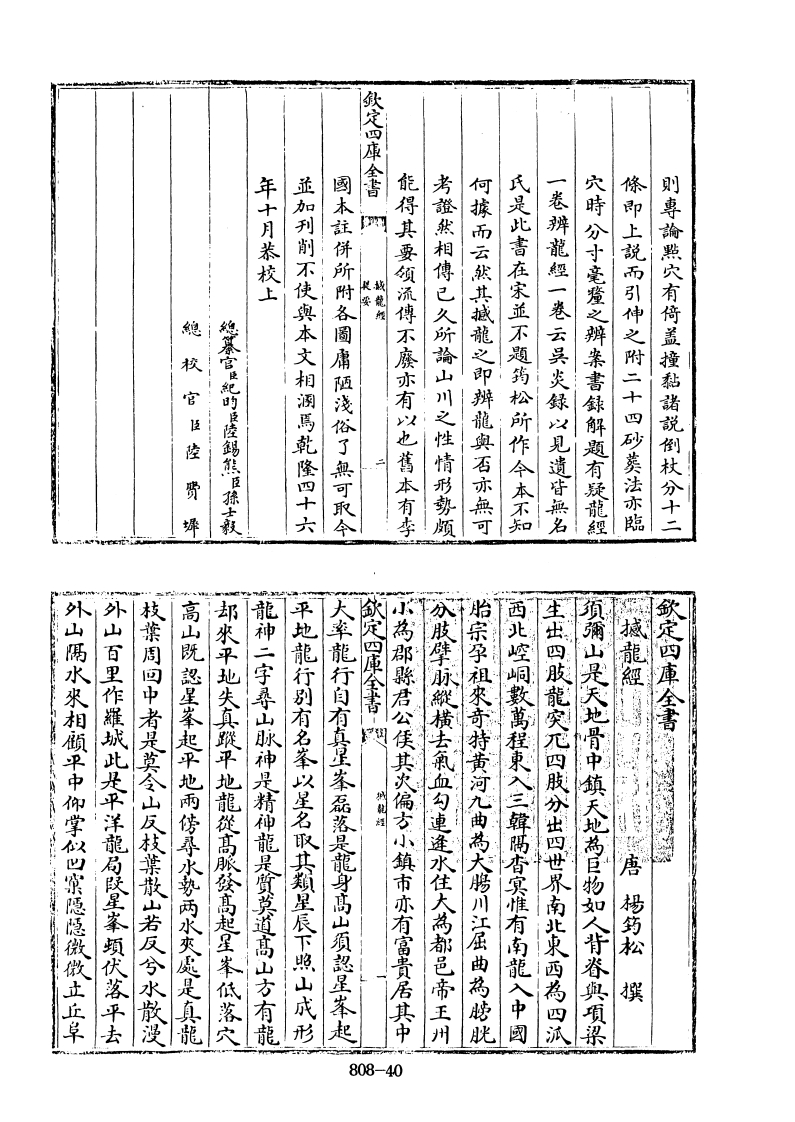 則專論㸃穴有倚葢撞黏諸説倒杖分十二
條即上説而引伸之附二十四砂葬法亦臨
穴時分寸毫釐之辨案書録解題有疑龍經
一卷辨龍經一卷云吳炎録以見遺皆無名
氏是此書在宋並不題筠松所作今本不知
何據而云然其撼龍之即辨龍與否亦無可
考證然相傳已久所論山川之性情形勢頗
能得其要領流傳不廢亦有以也舊本有李
欽定四庫全書
撼龍經
提要
二
國本註併所附各圖庸陋淺俗了無可取今
並加刊削不使與本文相溷焉乾隆四十六
年十月恭校上
總纂官臣紀昀臣陸錫熊臣孫士毅
總校官臣陸費墀
欽定四庫全書
撼龍經
唐 楊筠松 撰
須彌山是天地骨中鎮天地為巨物如人背脊與項梁
生出四肢龍突兀四肢分出四世界南北東西為四派
西北崆峒數萬程東入三韓隔杳冥惟有南龍入中國
胎宗孕祖來奇特黃河九曲為大腸川江屈曲為膀胱
分肢擘脉縱橫去氣血勾連逢水住大為都邑帝王州
小為郡縣君公侯其次偏方小鎮市亦有富貴居其中
欽定四庫全書
撼龍經
一
大率龍行自有真星峯磊落是龍身髙山須認星峯起
平地龍行别有名峯以星名取其類星辰下照山成形
龍神二字尋山脉神是精神龍是質莫道髙山方有龍
却來平地失真蹤平地龍從髙脈發髙起星峯低落穴
高山既認星峯起平地兩傍尋水勢兩水夾處是真龍
枝葉周回中者是莫令山反枝葉散山若反兮水散漫
外山百里作羅城此是平洋龍局段星峯頓伏落平去
外山隔水來相顧平中仰掌似凹窠隠隠微微立丘阜
808-40